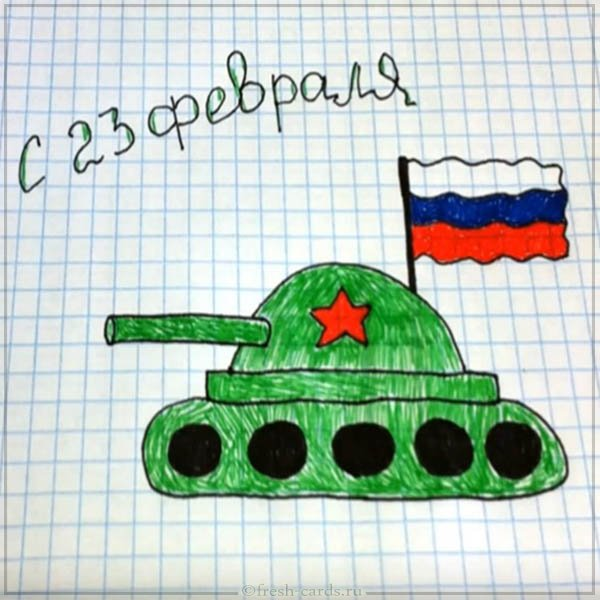 С 23 февраля
©fresh-cards.ru